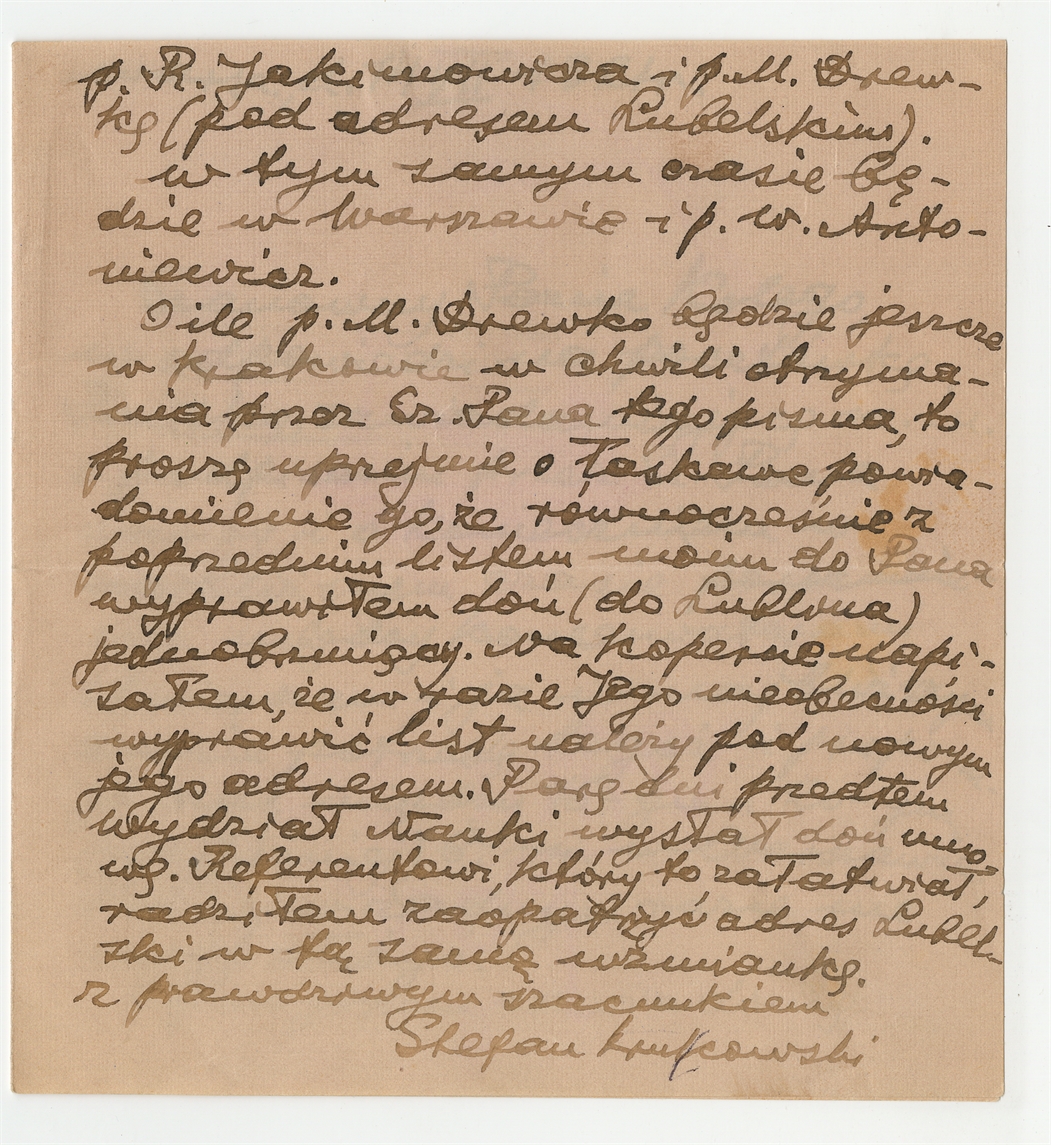 p. R. Jakimowicza i p. M. Drew-
kę (pod adresem Lubelskim).
w tym samym czasie bę-
dzie w Warszawie i p. W. Anto-
niewicz.
O ile p. M. Drewko będzie jeszcze
w Krakowie w chwili otrzyma-
nia przez Sz. Pana tego pisma, to
proszę uprzejmie o łaskawe powia-
domienie go, że równocześnie z
poprzednim listem moim do Pana
wyprawiłem doń (do Lublina)
jednobrzmiący. Na kopercie napi-
sałem, że w razie Jego nieobecności
wyprawić list należy pod nowym
jego adresem. Parę dni przedtem
Wydział Nauki wysłał doń umo-
wę. Referentowi, który to załatwiał,
radziłem zaopatrzyć adres Lubel-
ski w tą samą wzmiankę.
z prawdziwym szacunkiem
Stefan Krukowski